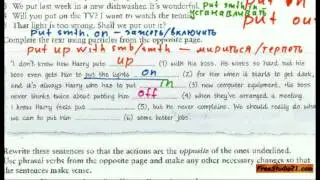 We put last week in a new dishwasher. It's wonderful.
Will you put on the TV? I want to watch the tennis.
That light is too strong. Shall we put out it?
put smth. on – зажечь/включить
put out
Complete the text using particles from the opposite page.
put up with smb/smth – мириться/терпеть
'I don't know how Harry puts up (1) with his boss. He works so hard but his
boss even gets him to put the lights on (2) for him when it starts to get dark,
and it's always Harry who has to put in (3) new computer equipment. His boss
never thinks twice about putting him off (4) when they've arranged a meeting.
I know Harry feels put (5), but he never complains. We should really do what
we can to put him (6) some better jobs.
Rewrite these sentences so that the actions are the opposite of the ones underlined.
Use phrasal verbs from the opposite page and make any other necessary changes so that
the sentences make sense.
FreeStudio21.com